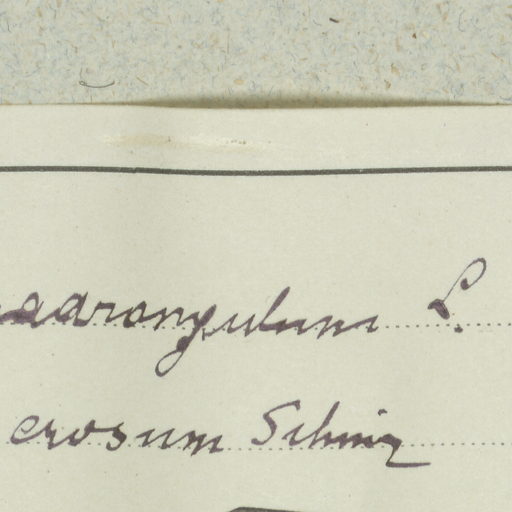 uadrangulum L.
erosum Schinz